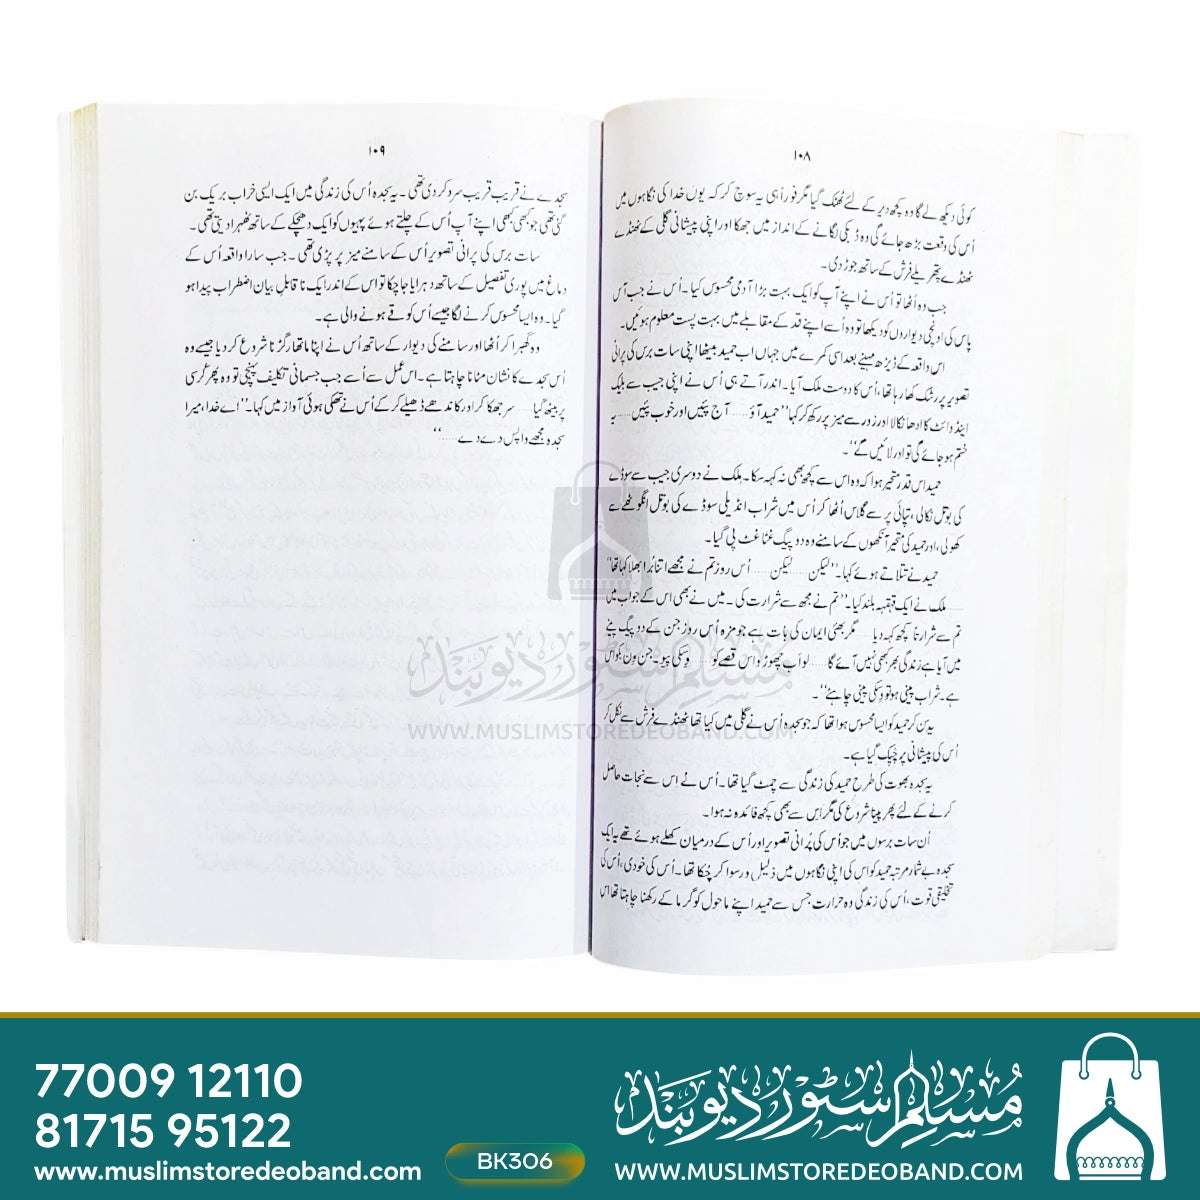 ۱۰۸
کوئی دیکھ لے گا وہ کچھ دیر کے لئے ٹھٹک گیا مگر فوراً ہی یہ سوچ کر کہ یوں خدا کی نگاہوں میں
اُس کی وقعت بڑھ جائے گی وہ ڈبکی لگانے کے انداز میں جھکا اور اپنی پیشانی گلی کے ٹھنڈے
ٹھنڈے پتھریلے فرش کے ساتھ جوڑ دی۔
جب وہ اُٹھا تو اُس نے اپنے آپ کو ایک بہت بڑا آدمی محسوس کیا۔ اُس نے جب آس
پاس کی اونچی دیواروں کو دیکھا تو وہ اُسے اپنے قد کے مقابلے میں بہت پست معلوم ہوئیں۔
اس واقعہ کے ڈیڑھ مہینے بعد اسی کمرے میں جہاں اب حمید بیٹھا اپنی سات برس کی پرانی
تصویر پر رشک کھا رہا تھا، اُس کا دوست ملک آیا۔ اندر آتے ہی اُس نے اپنی جیب سے بلیک
اینڈ وائٹ کا ادھا نکالا اور زور سے میز پر رکھ کر کہا ”حمید آؤ...... آج پئیں اور خوب پئیں...... یہ
ختم ہو جائے گی تو اور لائیں گے“۔
حمید اس قدر متحیر ہوا کہ وہ اس سے کچھ بھی نہ کہہ سکا۔ ملک نے دوسری جیب سے سوڈے
کی بوتل نکالی، تپائی پر سے گلاس اُٹھا کر اُس میں شراب انڈیلی سوڈے کی بوتل انگوٹھے سے
کھولی، اور حمید کی متحیر آنکھوں کے سامنے وہ دو پیگ غٹا غٹ پی گیا۔
حمید نے تتلاتے ہوئے کہا۔ ”لیکن...... لیکن...... اُس روز تم نے مجھے اتنا بُرا بھلا کہا تھا“
...... ملک نے ایک قہقہہ بلند کیا۔ ”تم نے مجھ سے شرارت کی۔ میں نے بھی اس کے جواب میں
تم سے شرارتا کچھ کہہ دیا...... مگر بھئی ایمان کی بات ہے جو مزہ اُس روز جن کے دو پیگ پینے
میں آیا ہے زندگی بھر کبھی نہیں آئے گا...... لو اب چھوڑو اس قصے کو...... وسکی پیو۔ جن ون بکواس
ہے۔ شراب پینی ہو تو وسکی پینی چاہئے“۔
یہ سن کر حمید کو ایسا محسوس ہوا تھا کہ جو سجدہ اُس نے گلی میں کیا تھا ٹھنڈے فرش سے نکل کر
اُس کی پیشانی پر چپک گیا ہے۔
یہ سجدہ بھوت کی طرح حمید کی زندگی سے چمٹ گیا تھا۔ اُس نے اِس سے نجات حاصل
کرنے کے لئے پھر پینا شروع کی مگر اس سے بھی کچھ فائدہ نہ ہوا۔
اُن سات برسوں میں جو اُس کی پُرانی تصویر اور اُس کے درمیان کھلے ہوئے تھے یہ ایک
سجدہ بے شمار مرتبہ حمید کو اس کی اپنی نگاہوں میں ذلیل و رسوا کر چُکا تھا۔ اُس کی خودی، اُس کی
تخلیقی قوت، اُس کی زندگی وہ حرارت جس سے حمید اپنے ماحول کو گرما کے رکھنا چاہتا تھا اس
۱۰۹
سجدے نے قریب قریب سرد کر دی تھی۔ یہ سجدہ اُس کی زندگی میں ایک ایسی خراب بریک بن
گئی تھی جو کبھی کبھی اپنے آپ اُس کے چلتے ہوئے پہیوں کو ایک دھچکے کے ساتھ ٹھہرا دیتی تھی۔
سات برس کی پرانی تصویر اُس کے سامنے میز پر پڑی تھی۔ جب سارا واقعہ اُس کے
دماغ میں پوری تفصیل کے ساتھ دہرایا جا چکا تو اس کے اندر ایک ناقابلِ بیان اضطراب پیدا ہو
گیا۔ وہ ایسا محسوس کرنے لگا جیسے اُس کو قے ہونے والی ہے۔
وہ گھبرا کر اُٹھا اور سامنے کی دیوار کے ساتھ اُس نے اپنا ماتھا رگڑنا شروع کر دیا جیسے وہ
اُس سجدے کا نشان مٹانا چاہتا ہے۔ اس عمل سے اُسے جب جسمانی تکلیف پہنچی تو وہ پھر کُرسی
پر بیٹھ گیا...... سر جھکا کر اور کاندھے ڈھیلے کر کے اُس نے تھکی ہوئی آواز میں کہا۔ ”اے خدا، میرا
سجدہ مجھے واپس دے دے......“
مسلم سٹور دیوبند
WWW.MUSLIMSTOREDEOBAND.COM
77009 12110
81715 95122
www.muslimstoredeoband.com
BK306
مُسلم سٹور دیوبند
WWW.MUSLIMSTOREDEOBAND.COM